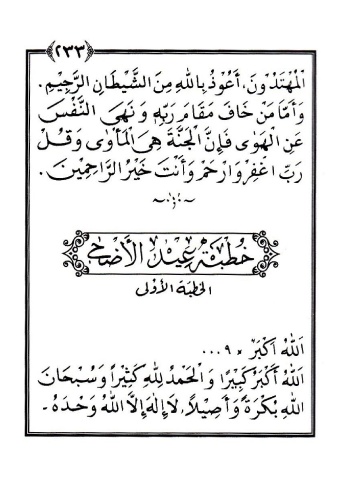 ﴿٢٣٣﴾
المُهْتَدُوْنَ، أَعُوْذُ بِاللهِ مِنَ الشَّيْطَانِ الرَّجِيْمِ.
وَأَمَّا مَنْ خَافَ مَقَامَ رَبِّهِ وَنَهَى النَّفْسَ
عَنِ الْهَوٰى فَإِنَّ الْجَنَّةَ هِيَ الْمَأْوٰى وَقُلْ
رَبِّ اغْفِرْ وَارْحَمْ وَأَنْتَ خَيْرُ الرَّاحِمِيْنَ.
خُطْبَةُ عِيْدِ الْأَضْحٰى
الخطبة الأولى
اَللهُ أَكْبَرُ × ٩ ...
اَللهُ أَكْبَرُ كَبِيْرًا وَالْحَمْدُ لِلّٰهِ كَثِيْرًا وَسُبْحَانَ
اللهِ بُكْرَةً وَأَصِيْلًا، لَا إِلٰهَ إِلَّا اللهُ وَحْدَهُ -